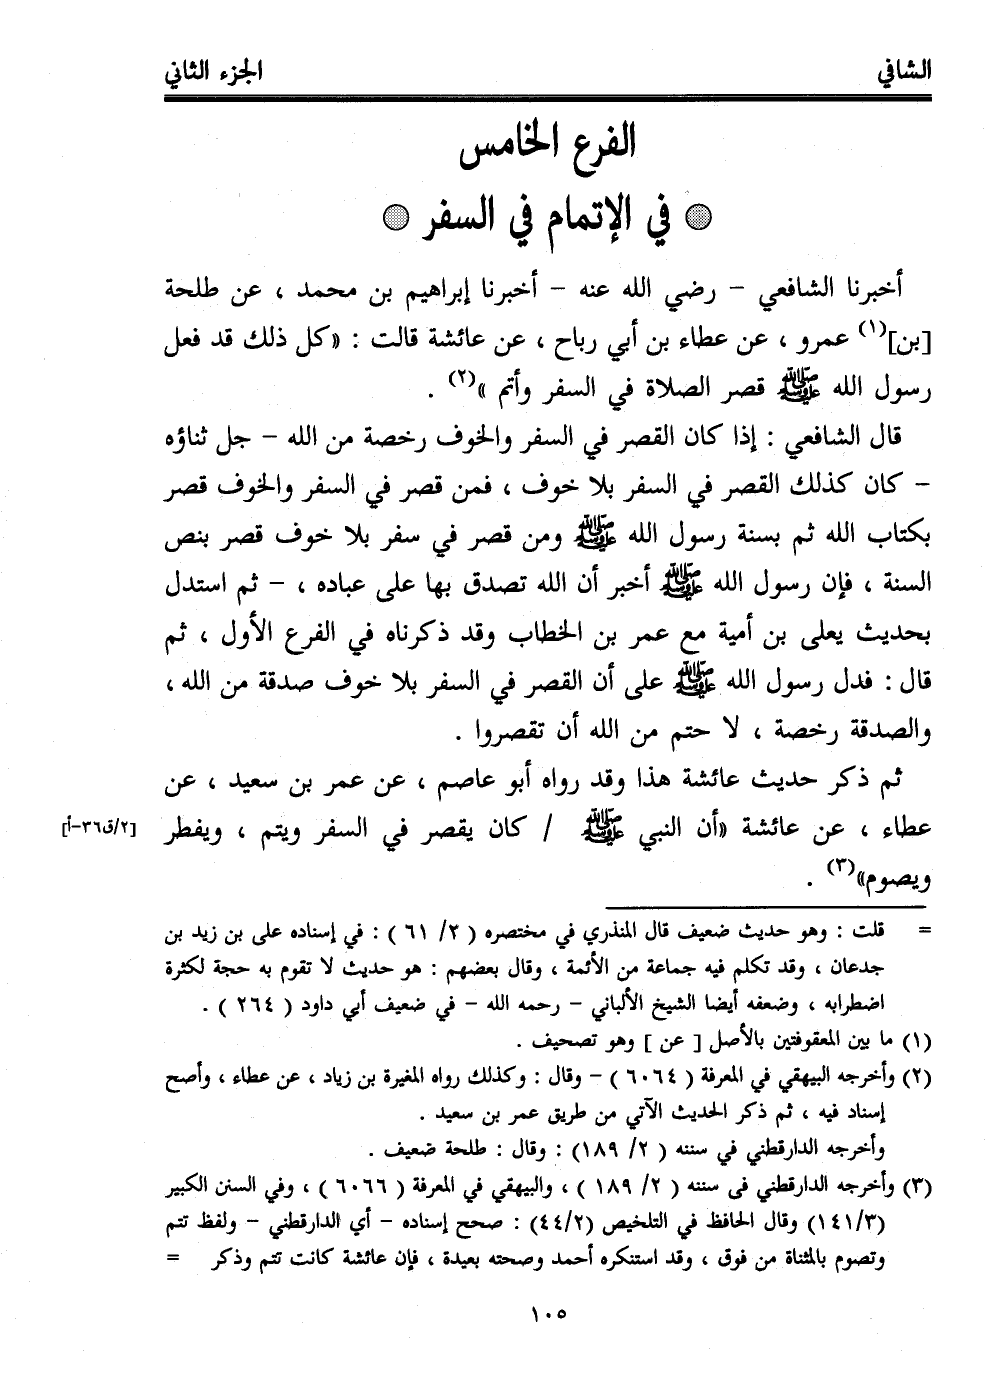 الشافي
الجزء الثاني
الفرع الخامس
في الإتمام في السفر
أخبرنا الشافعي - رضي الله عنه - أخبرنا إبراهيم بن محمد ، عن طلحة
[بن](١) عمرو ، عن عطاء بن أبي رباح ، عن عائشة قالت : «كل ذلك قد فعل
رسول الله ﷺ قصر الصلاة في السفر وأتم »(٢) .
قال الشافعي : إذا كان القصر في السفر والخوف رخصة من الله - جل ثناؤه
- كان كذلك القصر في السفر بلا خوف ، فمن قصر في السفر والخوف قصر
بكتاب الله ثم بسنة رسول الله ﷺ ومن قصر في سفر بلا خوف قصر بنص
السنة ، فإن رسول الله ﷺ أخبر أن الله تصدق بها على عباده ، - ثم استدل
بحديث يعلى بن أمية مع عمر بن الخطاب وقد ذكرناه في الفرع الأول ، ثم
قال : فدل رسول الله ﷺ على أن القصر في السفر بلا خوف صدقة من الله ،
والصدقة رخصة ، لا حتم من الله أن تقصروا .
ثم ذكر حديث عائشة هذا وقد رواه أبو عاصم ، عن عمر بن سعيد ، عن
عطاء ، عن عائشة «أن النبي ﷺ / كان يقصر في السفر ويتم ، ويفطر [٢/ق٣٦-أ]
ويصوم»(٣) .
= قلت : وهو حديث ضعيف قال المنذري في مختصره ( ٢/ ٦١ ) : في إسناده على بن زيد بن
جدعان ، وقد تكلم فيه جماعة من الأئمة ، وقال بعضهم : هو حديث لا تقوم به حجة لكثرة
اضطرابه ، وضعفه أيضا الشيخ الألباني - رحمه الله - في ضعيف أبي داود ( ٢٦٤ ) .
(١) ما بين المعقوفتين بالأصل [ عن ] وهو تصحيف .
(٢) وأخرجه البيهقي في المعرفة ( ٦٠٦٤ ) - وقال : وكذلك رواه المغيرة بن زياد ، عن عطاء ، وأصح
إسناد فيه ، ثم ذكر الحديث الآتي من طريق عمر بن سعيد .
وأخرجه الدارقطني في سننه ( ٢/ ١٨٩) : وقال : طلحة ضعيف .
(٣) وأخرجه الدارقطني فى سننه ( ٢/ ١٨٩ ) ، والبيهقي في المعرفة ( ٦٠٦٦ ) ، وفي السنن الكبير
(١٤١/٣) وقال الحافظ في التلخيص (٤٤/٢) : صحح إسناده - أي الدارقطني - ولفظ تتم
وتصوم بالمثناة من فوق ، وقد استنكره أحمد وصحته بعيدة ، فإن عائشة كانت تتم وذكر =
١٠٥